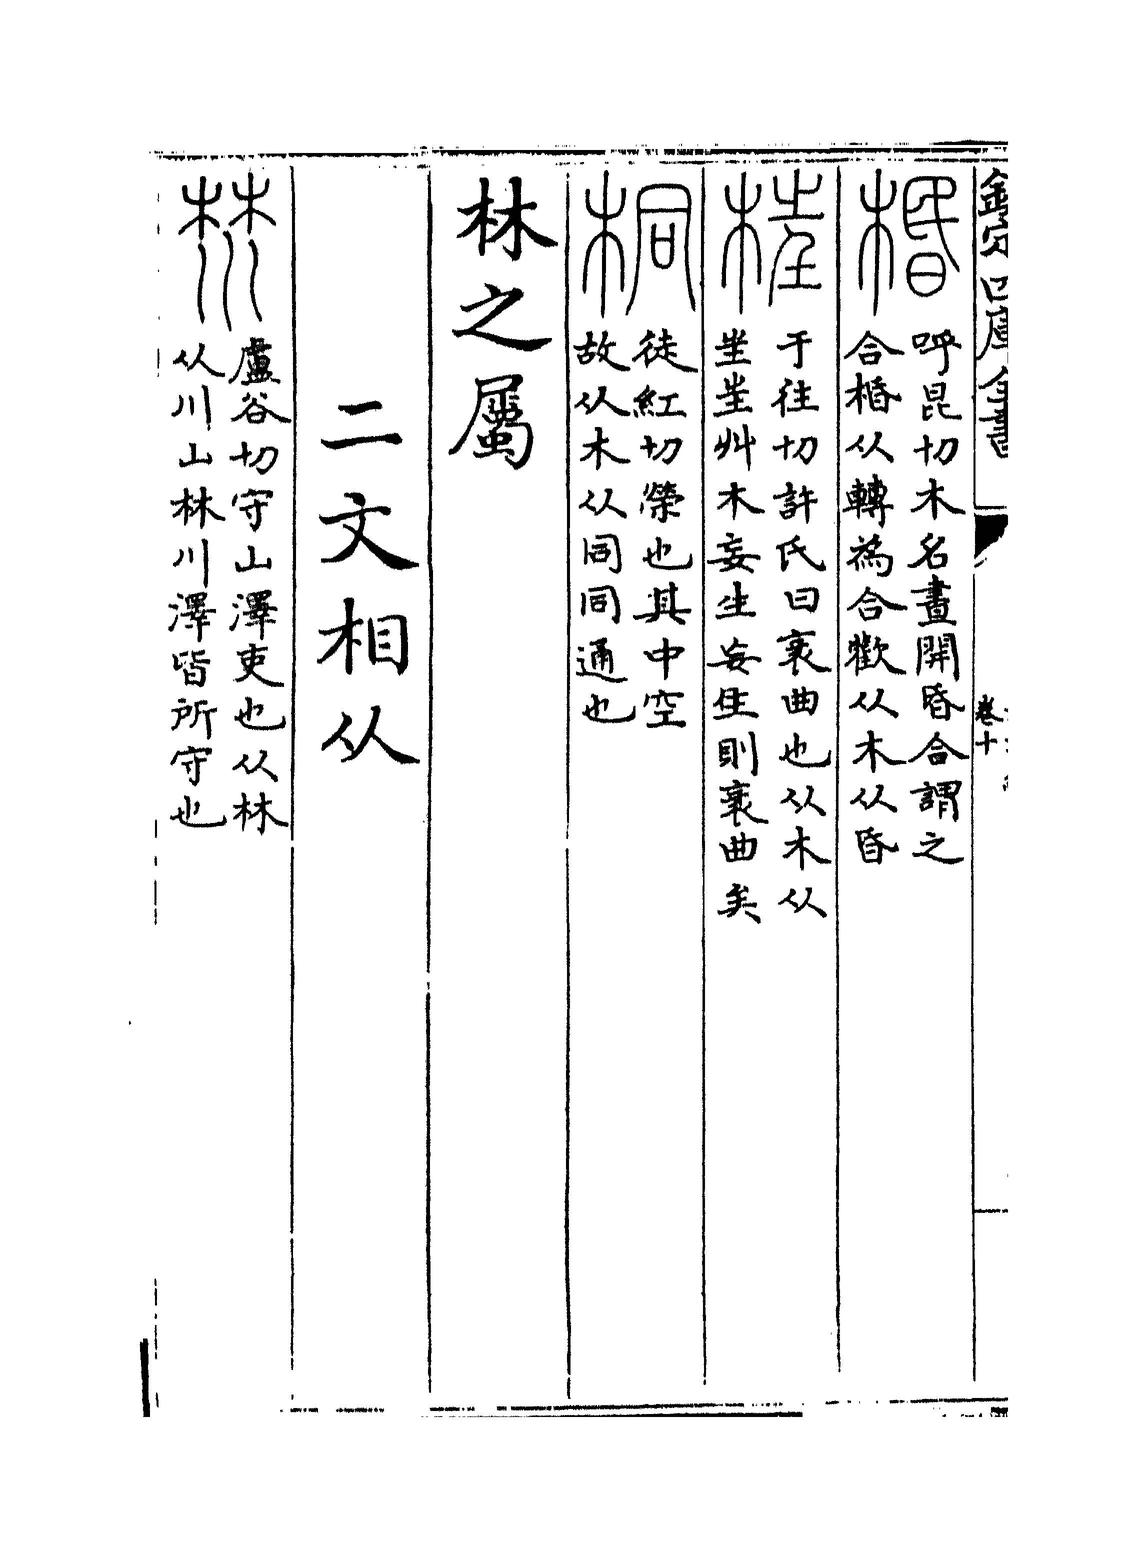 欽定四庫全書
卷十
棔
呼昆切木名晝開昏合謂之
合棔从轉為合歡从木从昏
枉
于往切許氏曰衺曲也从木从
㞷㞷艸木妄生妄生則衺曲矣
桐
徒紅切榮也其中空
故从木从同同通也
林之屬
二文相从
盧谷切守山澤吏也从林
从川山林川澤皆所守也